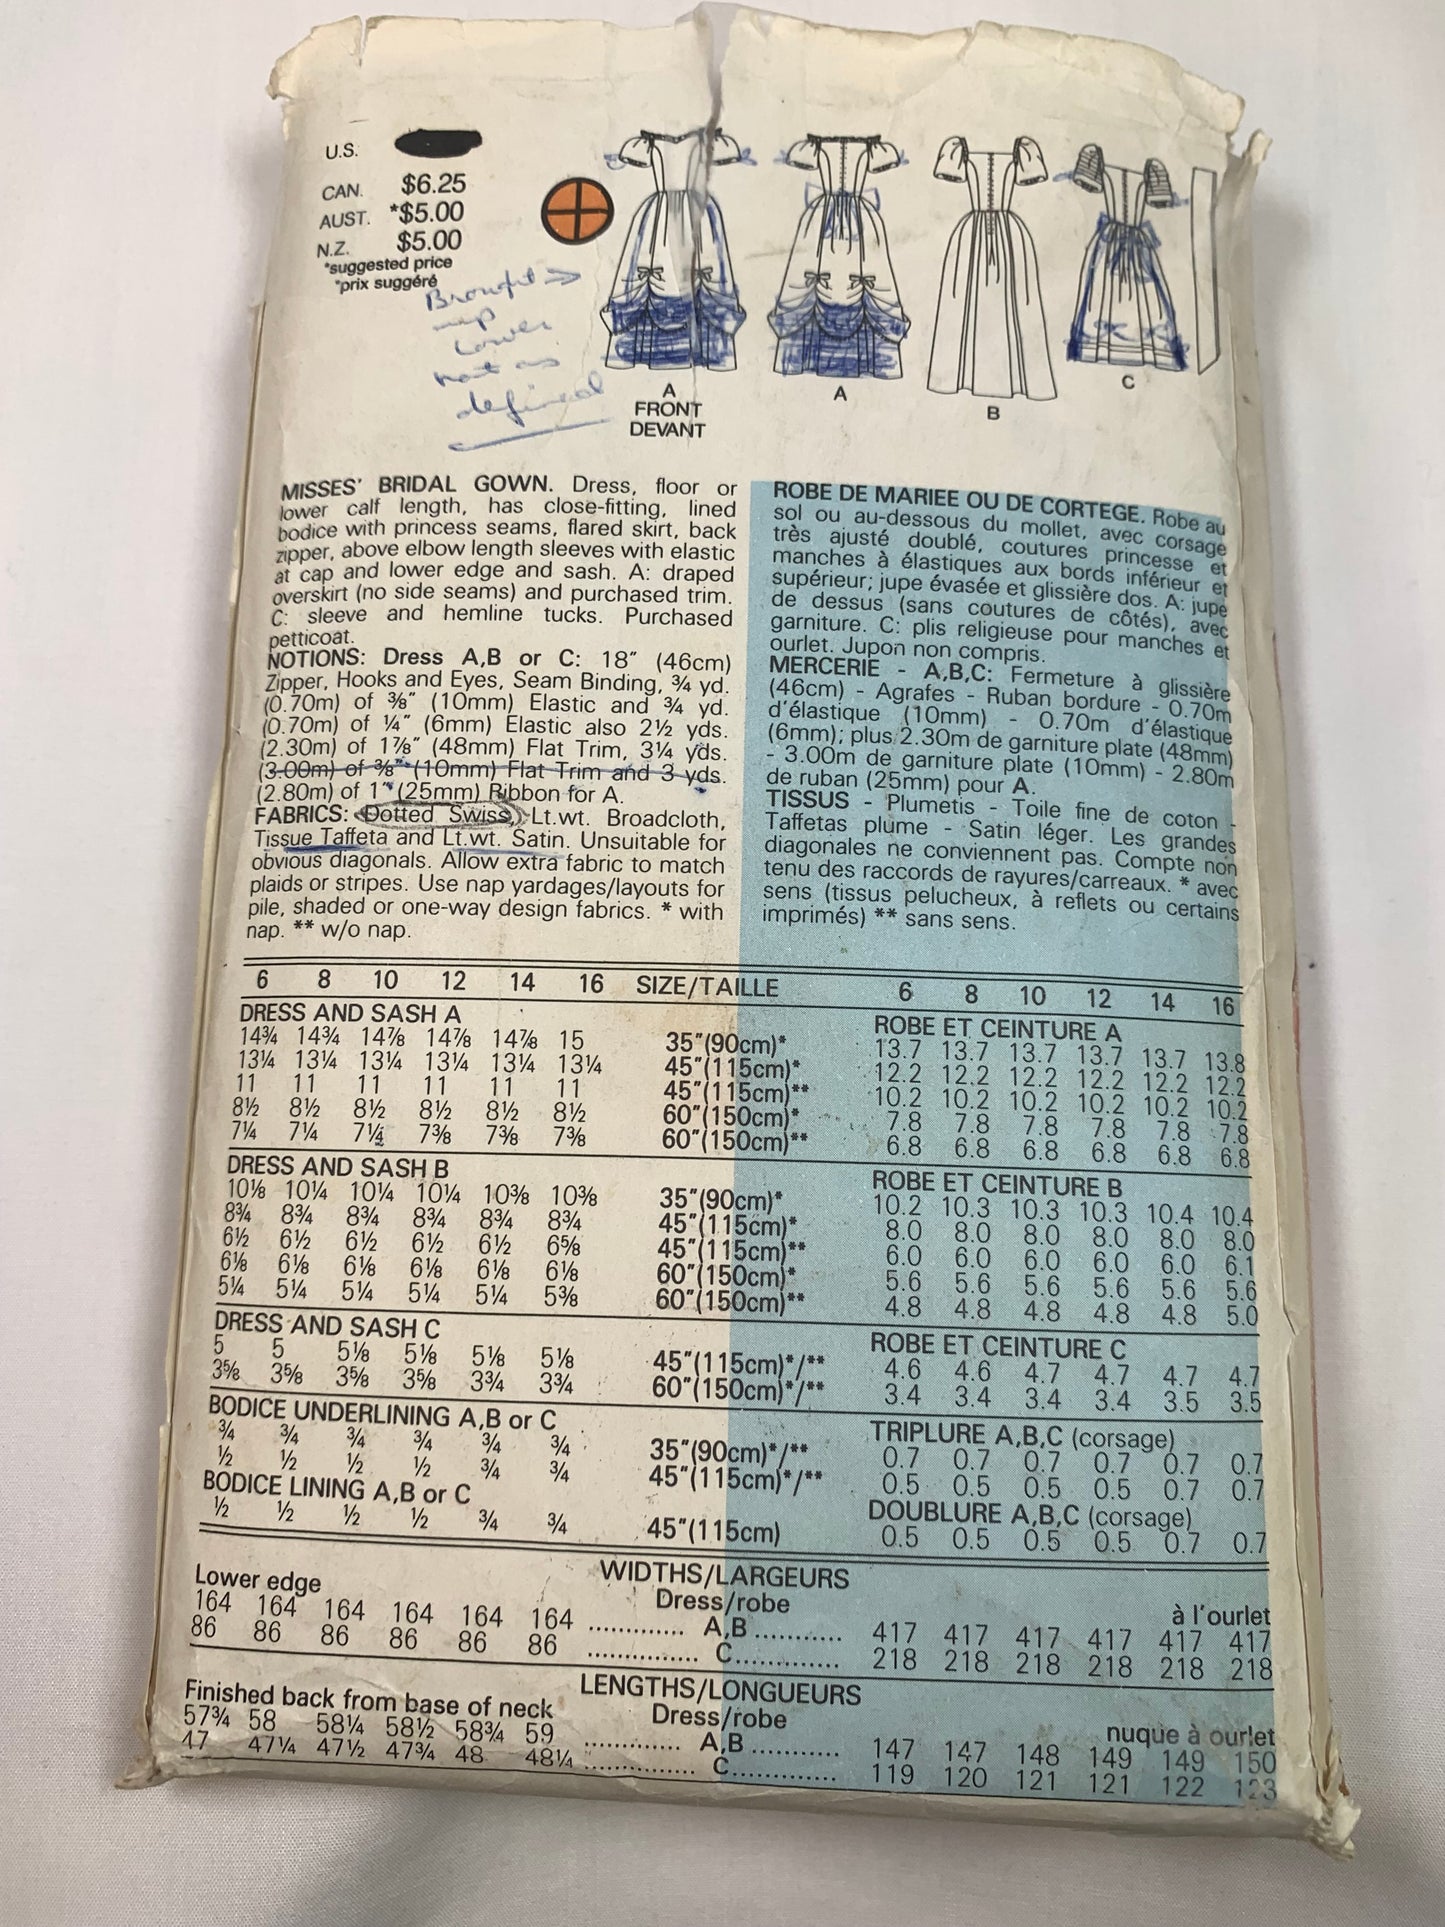 U.S.
CAN. $6.25
AUST. *$5.00
N.Z. $5.00
*suggested price
*prix suggéré
Brought
up
Lower
not as
defined
A
FRONT
DEVANT
A
B
C
MISSES' BRIDAL GOWN. Dress, floor or
lower calf length, has close-fitting, lined
bodice with princess seams, flared skirt, back
zipper, above elbow length sleeves with elastic
at cap and lower edge and sash. A: draped
overskirt (no side seams) and purchased trim.
C: sleeve and hemline tucks. Purchased
petticoat.
NOTIONS: Dress A,B or C: 18" (46cm)
Zipper, Hooks and Eyes, Seam Binding, ¾ yd.
(0.70m) of ⅜" (10mm) Elastic and ¾ yd.
(0.70m) of ¼" (6mm) Elastic also 2½ yds.
(2.30m) of 1⅞" (48mm) Flat Trim, 3¼ yds.
(3.00m) of ⅜" (10mm) Flat Trim and 3 yds.
(2.80m) of 1" (25mm) Ribbon for A.
FABRICS: Dotted Swiss, Lt.wt. Broadcloth,
Tissue Taffeta and Lt.wt. Satin. Unsuitable for
obvious diagonals. Allow extra fabric to match
plaids or stripes. Use nap yardages/layouts for
pile, shaded or one-way design fabrics. * with
nap. ** w/o nap.
ROBE DE MARIEE OU DE CORTEGE. Robe au
sol ou au-dessous du mollet, avec corsage
très ajusté doublé, coutures princesse et
manches à élastiques aux bords inférieur et
supérieur; jupe évasée et glissière dos. A: jupe
de dessus (sans coutures de côtés), avec
garniture. C: plis religieuse pour manches et
ourlet. Jupon non compris.
MERCERIE - A,B,C: Fermeture à glissière
(46cm) - Agrafes - Ruban bordure - 0.70m
d'élastique (10mm) - 0.70m d'élastique
(6mm); plus 2.30m de garniture plate (48mm)
- 3.00m de garniture plate (10mm) - 2.80m
de ruban (25mm) pour A.
TISSUS - Plumetis - Toile fine de coton -
Taffetas plume - Satin léger. Les grandes
diagonales ne conviennent pas. Compte non
tenu des raccords de rayures/carreaux. * avec
sens (tissus pelucheux, à reflets ou certains
imprimés) ** sans sens.
6 8 10 12 14 16 SIZE/TAILLE 6 8 10 12 14 16
DRESS AND SASH A ROBE ET CEINTURE A
14¾ 14¾ 14⅞ 14⅞ 14⅞ 15 35"(90cm)* 13.7 13.7 13.7 13.7 13.7 13.8
13¼ 13¼ 13¼ 13¼ 13¼ 13¼ 45"(115cm)* 12.2 12.2 12.2 12.2 12.2 12.2
11 11 11 11 11 11 45"(115cm)** 10.2 10.2 10.2 10.2 10.2 10.2
8½ 8½ 8½ 8½ 8½ 8½ 60"(150cm)* 7.8 7.8 7.8 7.8 7.8 7.8
7¼ 7¼ 7¼ 7⅜ 7⅜ 7⅜ 60"(150cm)** 6.8 6.8 6.8 6.8 6.8 6.8
DRESS AND SASH B ROBE ET CEINTURE B
10⅛ 10¼ 10¼ 10¼ 10⅜ 10⅜ 35"(90cm)* 10.2 10.3 10.3 10.3 10.4 10.4
8¾ 8¾ 8¾ 8¾ 8¾ 8¾ 45"(115cm)* 8.0 8.0 8.0 8.0 8.0 8.0
6½ 6½ 6½ 6½ 6½ 6⅝ 45"(115cm)** 6.0 6.0 6.0 6.0 6.0 6.1
6⅛ 6⅛ 6⅛ 6⅛ 6⅛ 6⅛ 60"(150cm)* 5.6 5.6 5.6 5.6 5.6 5.6
5¼ 5¼ 5¼ 5¼ 5¼ 5⅜ 60"(150cm)** 4.8 4.8 4.8 4.8 4.8 5.0
DRESS AND SASH C ROBE ET CEINTURE C
5 5 5⅛ 5⅛ 5⅛ 5⅛ 45"(115cm)*/** 4.6 4.6 4.7 4.7 4.7 4.7
3⅝ 3⅝ 3⅝ 3⅝ 3¾ 3¾ 60"(150cm)*/** 3.4 3.4 3.4 3.4 3.5 3.5
BODICE UNDERLINING A,B or C TRIPLURE A,B,C (corsage)
¾ ¾ ¾ ¾ ¾ ¾ 35"(90cm)*/** 0.7 0.7 0.7 0.7 0.7 0.7
½ ½ ½ ½ ¾ ¾ 45"(115cm)*/** 0.5 0.5 0.5 0.5 0.7 0.7
BODICE LINING A,B or C DOUBLURE A,B,C (corsage)
½ ½ ½ ½ ¾ ¾ 45"(115cm) 0.5 0.5 0.5 0.5 0.7 0.7
WIDTHS/LARGEURS
Lower edge Dress/robe à l'ourlet
164 164 164 164 164 164 ............. A,B ........... 417 417 417 417 417 417
86 86 86 86 86 86 ............... C............. 218 218 218 218 218 218
LENGTHS/LONGUEURS
Finished back from base of neck Dress/robe nuque à ourlet
57¾ 58 58¼ 58½ 58¾ 59 ............. A,B ........... 147 147 148 149 149 150
47 47¼ 47½ 47¾ 48 48¼ ............... C............. 119 120 121 121 122 123